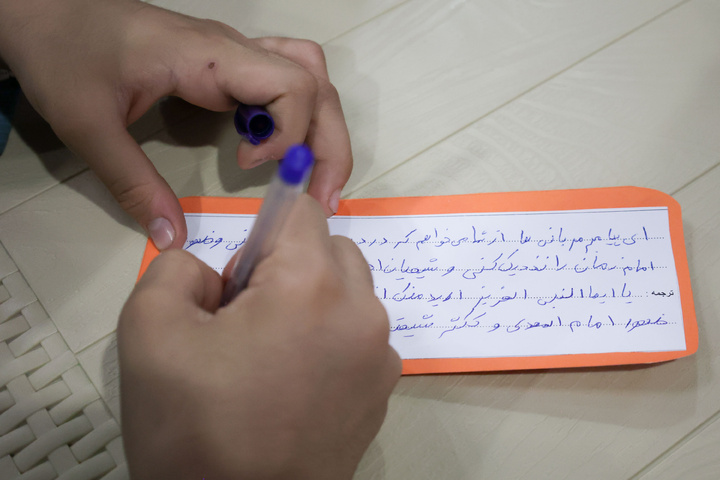 ای پیامبر مهربانی ها از شما می‌خواهم که در د وظهور
امام زمان را نزدیک کنی و شیعیان
ترجمه: یا ایها النبی العزیز ارید منک
ظهور امام المهدی و